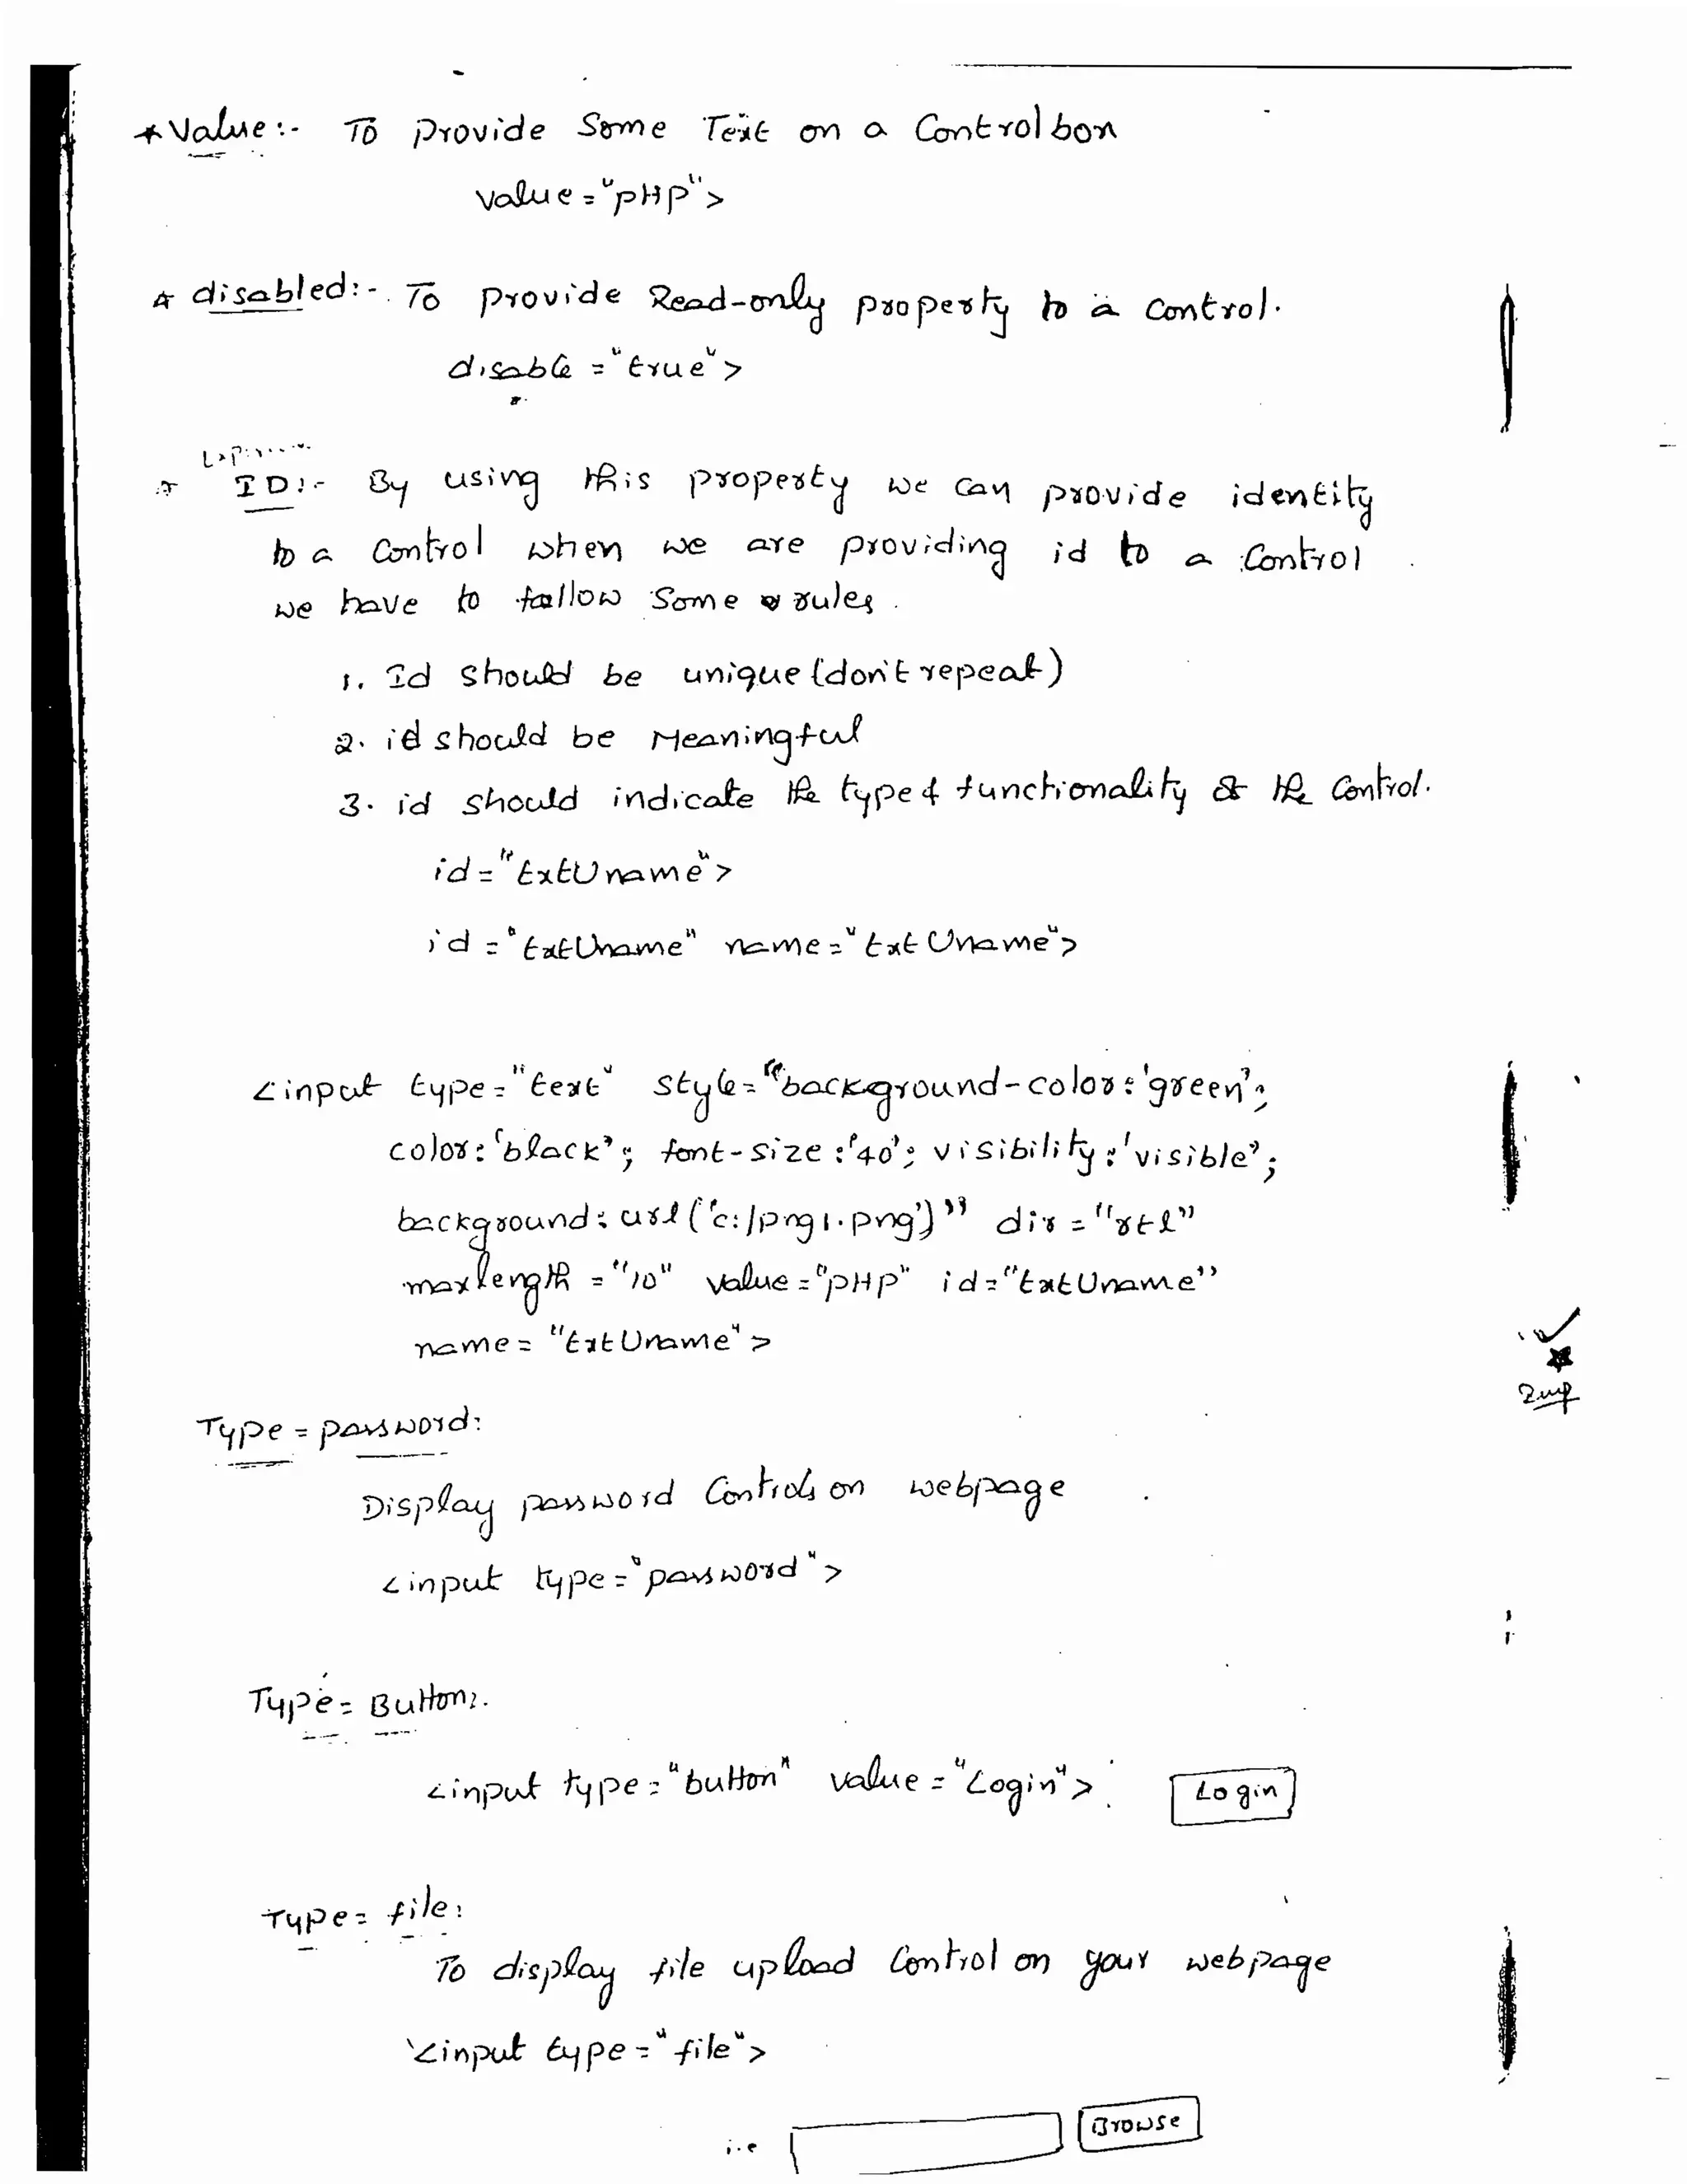 * Value :- To Provide Some Text on a Control box
value = "pHp" >
* disabled :- To provide Read-only property to a control.
disable = "true" >
* ID :- By using this property we can provide identity
to a control when we are providing id to a control
we have to follow some rules.
1. Id should be unique (don't repeat)
2. id should be Meaningful
3. id should indicate the type & functionality of the control.
id = "txtUname" >
id = "txtUname" name = "txtUname" >
<input type = "text" style = "background-color : 'green';
color : 'black'; font-size : '40'; visibility : 'visible';
background : url ('c:/png1.png')" dir = "rtl"
maxlength = "10" value = "pHp" id = "txtUname"
name = "txtUname" >
Imp
Type = password :
Display password Controls on webpage
<input type = "password" >
Type = Button :-
<input type = "button" value = "Login" > Login
Type = file :
To display file upload Control on your webpage
<input type = "file" >
i.e Browse